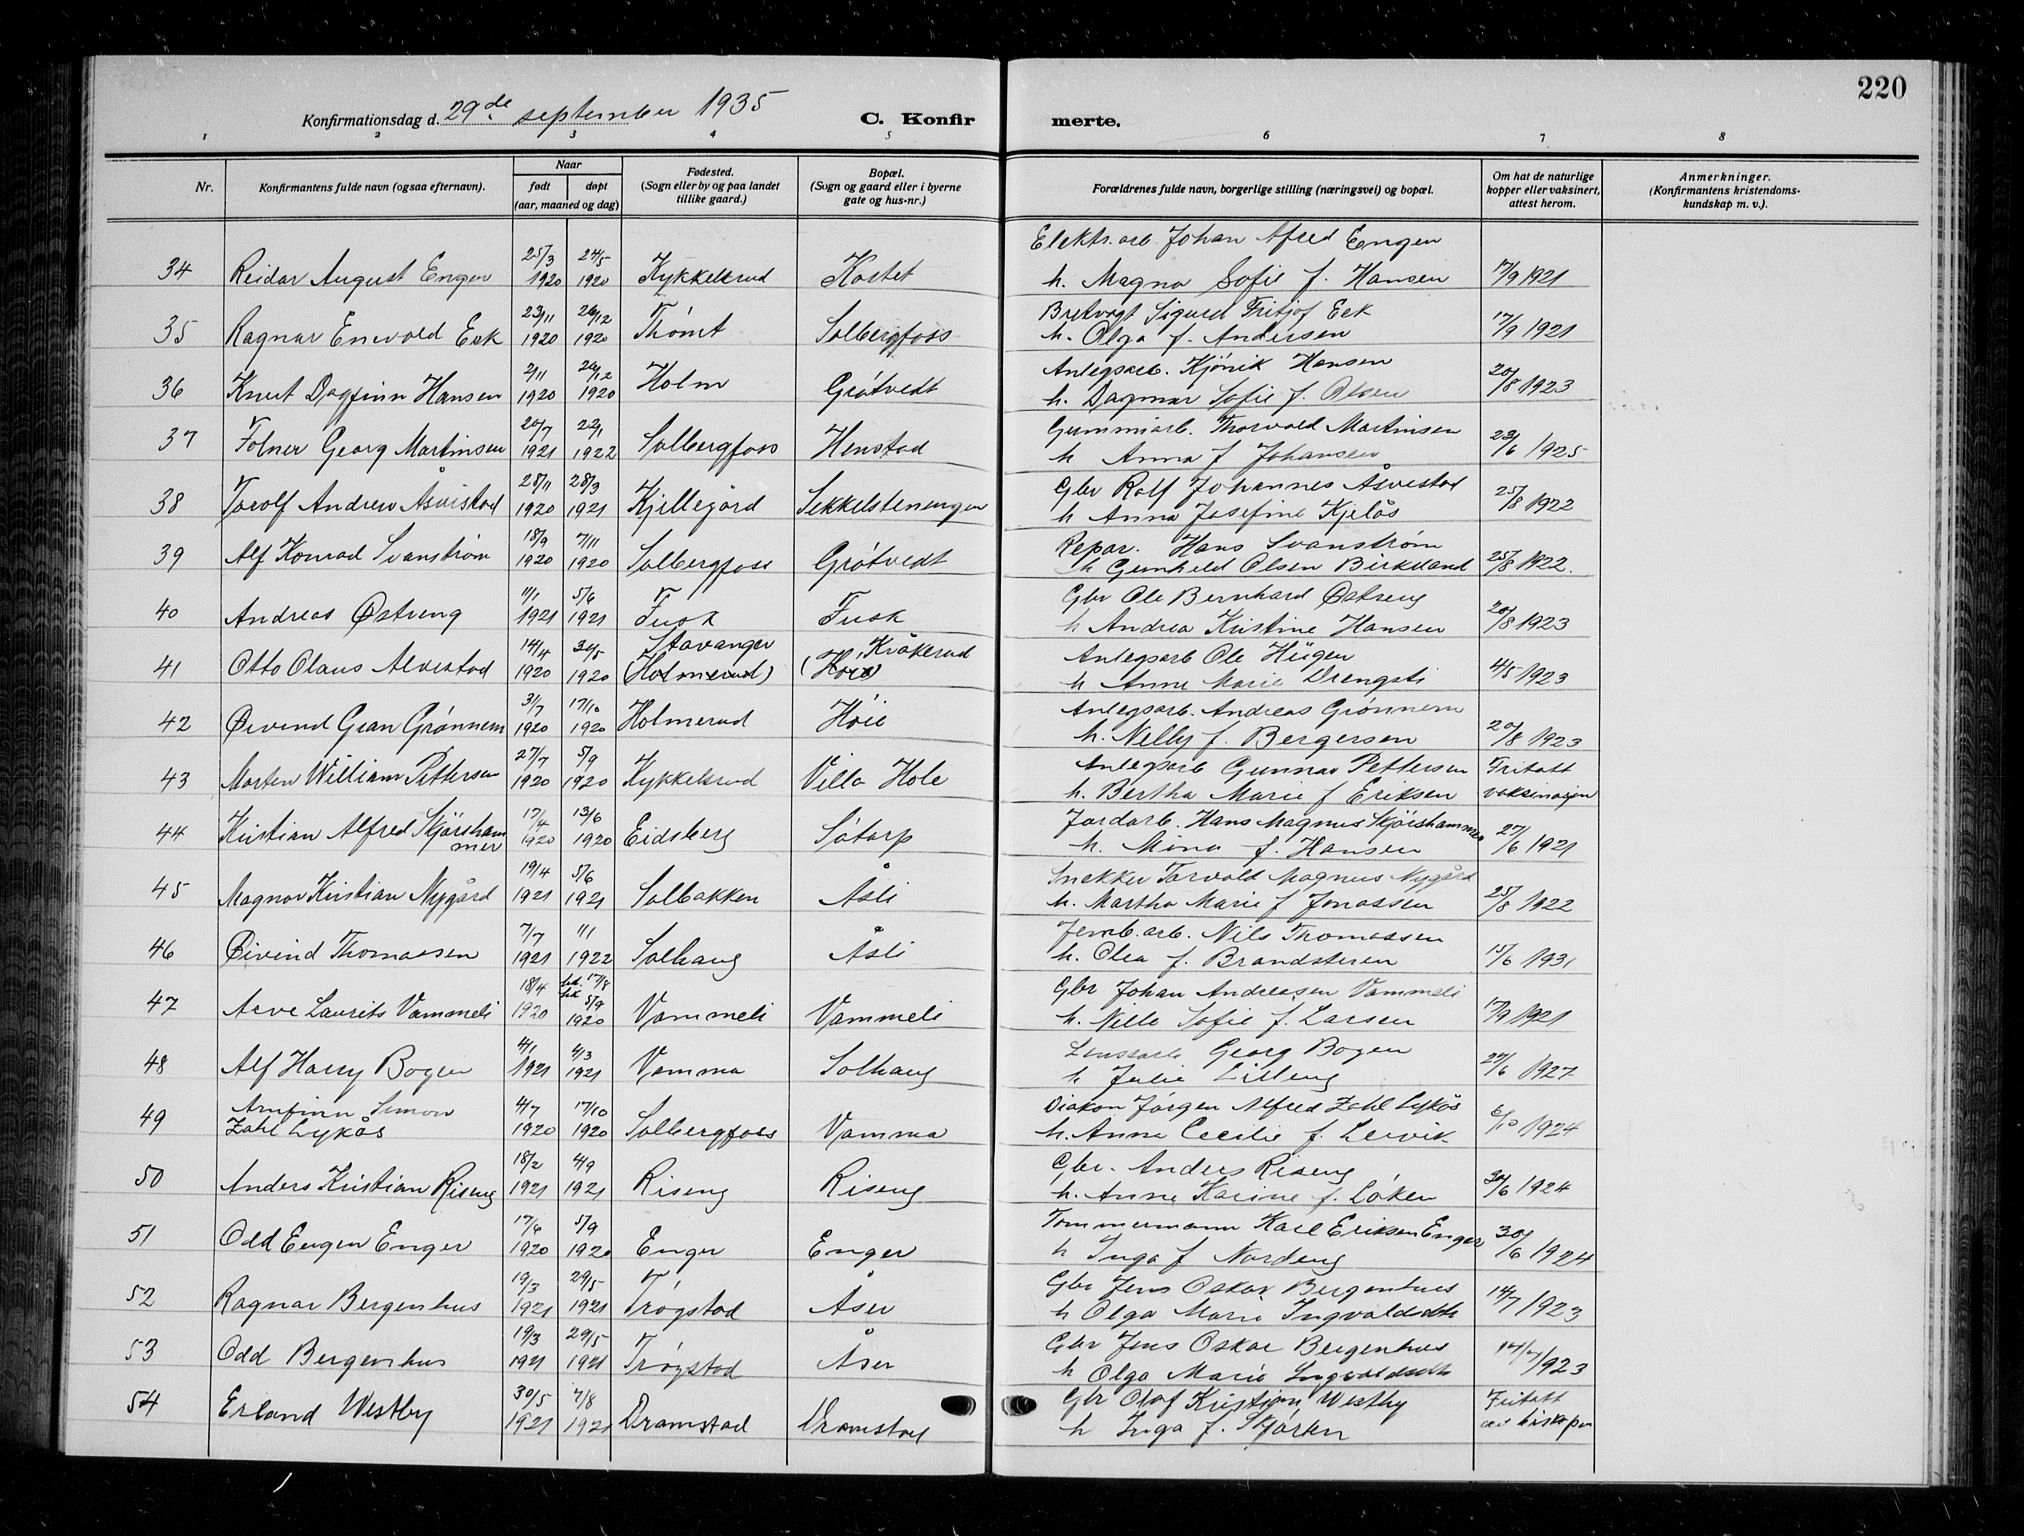 220
Konfirmationsdag d. 29de september 1935
C. Konfirmerte.
1 2 3 4 5 6 7 8
Nr.
Konfirmantens fulde navn (ogsaa efternavn).
Naar
født
døpt
(aar, maaned og dag)
Fødested.
(Sogn eller by og paa landet
tillike gaard.)
Bopæl.
(Sogn og gaard eller i byerne
gate og hus-nr.)
Forældrenes fulde navn, borgerlige stilling (næringsvei) og bopæl.
Om hat de naturlige
kopper eller vaksinert,
attest herom.
Anmerkninger.
(Konfirmantens kristendoms-
kundskap m. v.).
34 Reidar August Engen 25/3 1920 24/5 1920 Kykkelsrud Kostet Elektr.arb. Johan Afred Engen
h. Magna Sofie f. Hansen 17/9 1921
35 Ragnar Enevold Eek 23/11 1920 26/12 1920 Thømt Solbergfoss Bretvogt Sigurd Fritjof Eek
h. Olga f. Andersen 17/9 1921
36 Knut Dagfinn Hansen 2/11 1920 26/12 1920 Holm Grøtvedt Anlegsarb. Hansen
h. Dagmar Sofie f. Olsen 20/8 1923
37 Folner Georg Martinsen 20/7 1921 22/1 1922 Solbergfoss Henstad Gummiarb. Thorvald Martinsen
h Anna f Johansen 23/6 1925
38 Torolf Andrew Åsvistad 28/11 1920 28/3 1921 Kjillegård Sekkelstenengen Gbr Rolf Johannes Åsvestad
h Anna Josefine Kjelås 25/8 1922
39 Alf Konrad Svanstrøm 18/9 1920 7/11 1920 Solbergfoss Grøtvedt Repar. Hans Svanstrøm
h Gunhild Olsen Birkeland 25/8 1922.
40 Andreas Østreng 11/1 1921 5/6 1921 Fusk Fusk Gbr Ole Bernhard Østreng
h Andrea Kristine Hansen 20/8 1923
41 Otto Olaus Alvestad 14/4 1920 30/5 1920 Stavanger (Holmerud) Kråkerud (Høie) Anlegsarb Ole Hügen
h Anne Marie Drengsti 4/5 1923
42 Øivind Gran Grønnem 31/7 1920 17/10 1920 Holmerud Høie Anlegsarb. Andreas Grønnem
h. Nelly f. Bergersen 20/8 1923
43 Morten William Pettersen 27/7 1920 5/9 1920 Kykkelsrud Villa Hole Anlegsarb Gunnar Pettersen
h. Bertha Marie f Eriksen Fritatt vaksinasjon
44 Kristian Alfred Skjørshammer 17/4 1920 13/6 1920 Eidsberg Søtorp Jordarb. Hans Magnus Skjørshammer
h. Mina f. Hansen 27/6 1921
45 Magnar Kristian Nygård 19/4 1921 5/6 1921 Solbakken Åsli Snekker Torvald Magnus Nygård
h. Martha Marie f Jonassen 25/8 1922
46 Øivind Thomassen 7/7 1921 1/1 1922 Solhaug Åsli Jernb.arb. Nils Thomassen
h. Olea f. Brandsteren 15/6 1931
47 Arve Laurits Vammeli 18/4 1920 17/8 5/9 1920 Vammeli Vammeli Gbr Johan Andreasen Vammeli
h. Nille Sofie f. Larsen 17/9 1921
48 Alf Harry Bogen 4/1 1921 4/3 1921 Vamma Solhaug Lensearb Georg Bogen
h Julie Lilleng 27/6 1927
49 Arnfinn Simon Zahl Lykås 4/7 1920 17/10 1920 Solbergfoss Vamma Diakon Jørgen Alfred Zahl Lykås
h. Anna Cecilie f. Lervik 6/10 1924
50 Anders Kristian Riseng 18/2 1921 4/9 1921 Riseng Riseng Gbr. Anders Riseng
h. Anne Karine f. Løken 30/6 1924
51 Odd Eugen Enger 17/6 1920 5/9 1920 Enger Enger Tømmermann Karl Eriksen Enger
h Inga f Nordeng 30/6 1924
52 Ragnar Bergenhus 19/3 1921 29/5 1921 Trøgstad Åser Gbr Jens Oskar Bergenhus
h Olga Marie Ingvaldsdtr 14/7 1923
53 Odd Bergenhus 19/3 1921 29/5 1921 Trøgstad Åser Gbr Jens Oskar Bergenhus
h Olga Marie Ingvaldsdtr 14/7 1923
54 Erland Westby 30/5 1921 7/8 1921 Dramstad Dramstad Gbr Olaf Kristian Westby
h Inga f. Skjørten Fritatt av biskopen